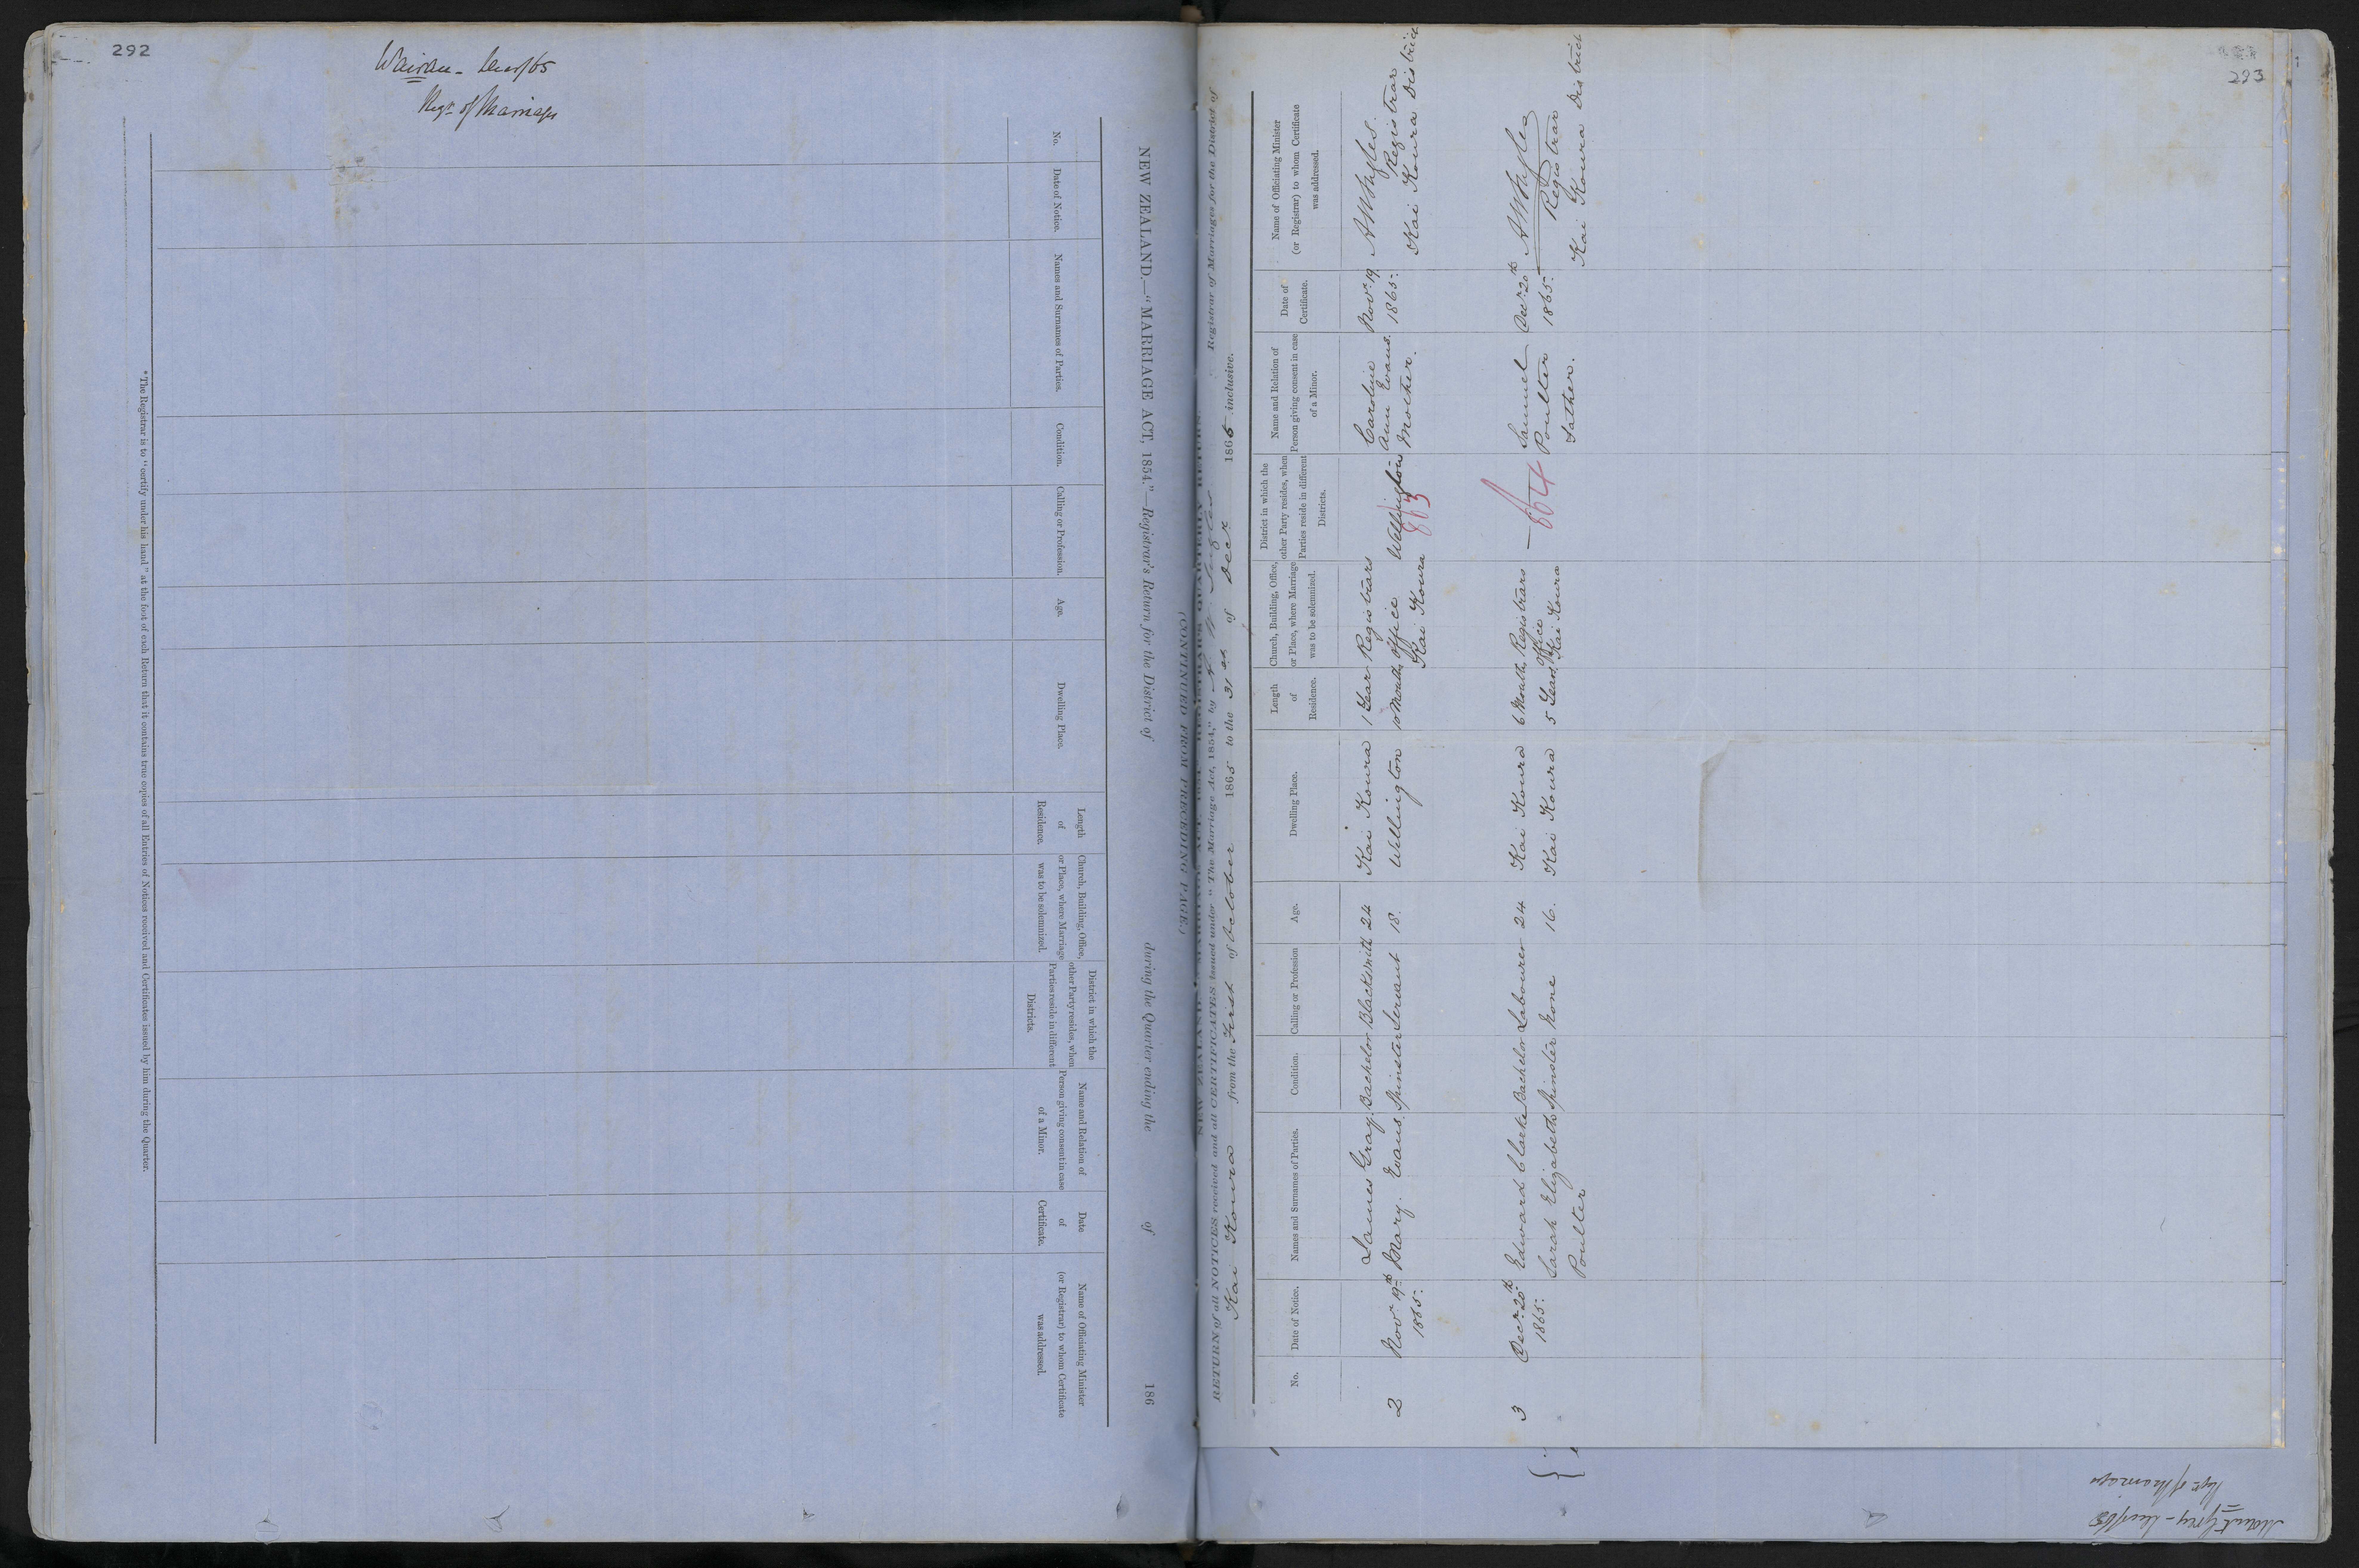 292
Wairau -
Regr of Marriages
NEW ZEALAND.—"MARRIAGE ACT, 1854."—Registrar's Return for the District of during the Quarter ending the of 186
(CONTINUED FROM PRECEDING PAGE.)
No.
Date of Notice.
Names and Surnames of Parties.
Condition.
Calling or Profession.
Age.
Dwelling Place.
Length
of
Residence.
Church, Building, Office,
or Place, where Marriage
was to be solemnized.
District in which the
other Party resides, when
Parties reside in different
Districts.
Name and Relation of
Person giving consent in case
of a Minor.
Date
of
Certificate.
Name of Officiating Minister
(or Registrar) to whom Certificate
was addressed.
* The Registrar is to "certify under his hand" at the foot of each Return that it contains true copies of all Entries of Notices received and Certificates issued by him during the Quarter.
293
RETURN of all NOTICES received and all CERTIFICATES issued under "The Marriage Act, 1854," by Registrar of Marriages for the District of
Kai Koura from the First of October 1865 to the 31st of Decr 1865 inclusive.
No.
Date of Notice.
Names and Surnames of Parties.
Condition.
Calling or Profession
Age.
Dwelling Place.
Length
of
Residence.
Church, Building, Office,
or Place, where Marriage
was to be solemnized.
District in which the
other Party resides, when
Parties reside in different
Districts.
Name and Relation of
Person giving consent in case
of a Minor.
Date of
Certificate.
Name of Officiating Minister
(or Registrar) to whom Certificate
was addressed.
2
Novr 19th
1865.
James Gray
Mary Evans
Bachelor
Spinster
Blacksmith
Servant
24
18.
Kai Koura
Wellington
1 Year
10 Months
Registrars
Office
Kai Koura
Wellington
863
Caroline
Ann Evans.
Mother.
Novr 19
1865.
Registrar
Kai Koura District
3
Decr 20th
1865.
Edward Clarke
Sarah Elizabeth
Poulter
Bachelor
Spinster
Labourer
None
24
16.
Kai Koura
Kai Koura
6 Months
5 Years
Registrars
Office
Kai Koura
—
864
Samuel
Poulter
Father.
Decr 20th
1865.
Registrar
Kai Koura District
Mount Grey -
Regr of Marriages